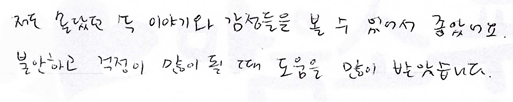 저도 몰랐던 속 이야기와 감정들을 볼 수 있어서 좋았어요.
불안하고 걱정이 많이 될 때 도움을 많이 받았습니다.